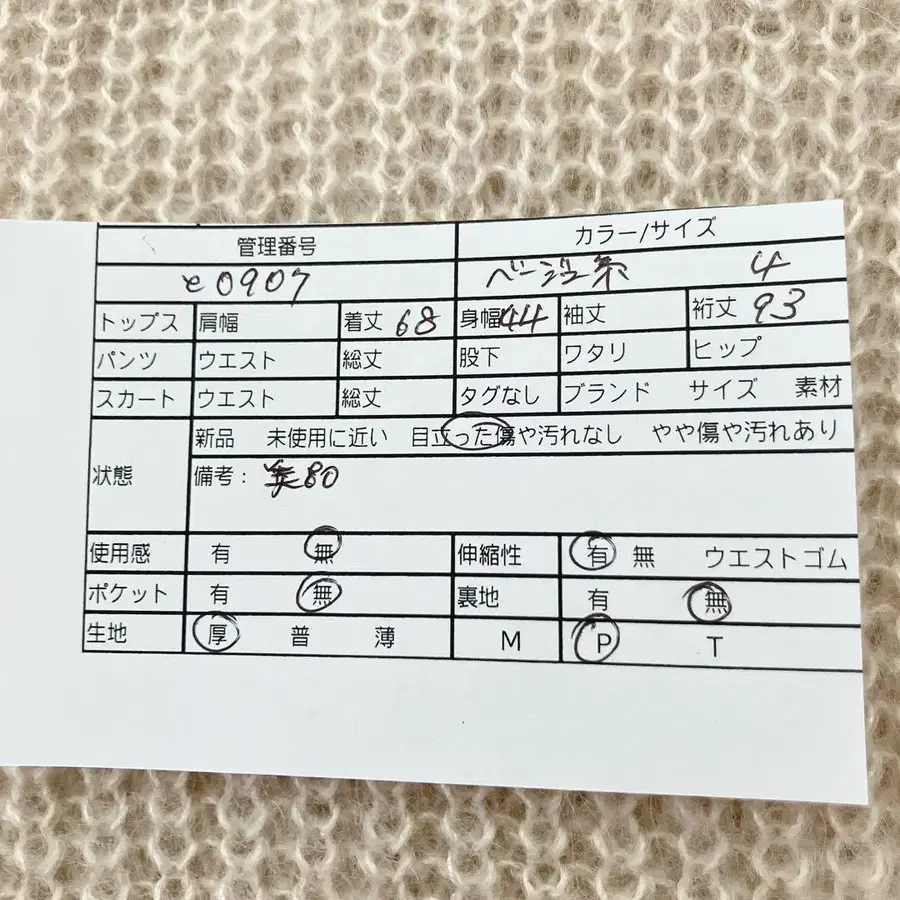 管理番号 カラー/サイズ
e0907 ベージュ系 4
トップス 肩幅 着丈 68 身幅 44 袖丈 裄丈 93
パンツ ウエスト 総丈 股下 ワタリ ヒップ
スカート ウエスト 総丈 タグなし ブランド サイズ 素材
新品 未使用に近い 目立った傷や汚れなし やや傷や汚れあり
状態 備考: 80
使用感 有 無 伸縮性 有 無 ウエストゴム
ポケット 有 無 裏地 有 無
生地 厚 普 薄 M P T